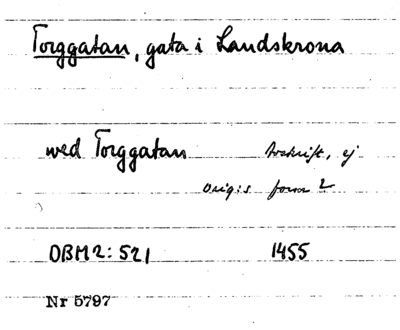 Torggatan, gata i Landskrona
wed Torggatan Avskrift, ej
orig:s form 2
DBM2: 521 1455
Nr 5797